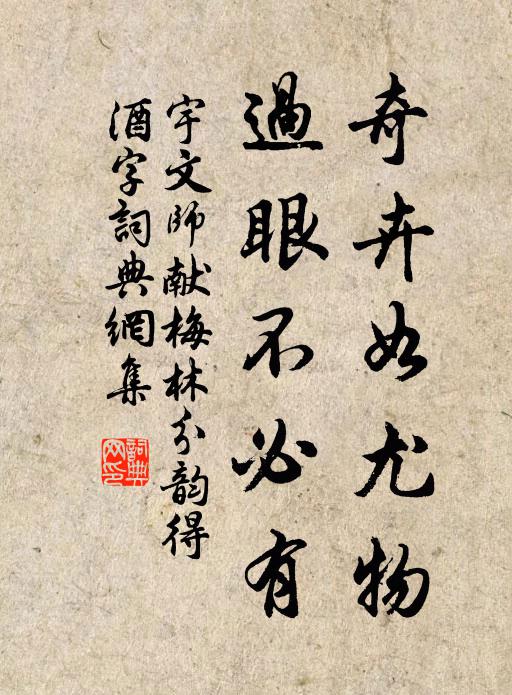 奇卉如尤物
過眼不必有
宇文師献梅林分韵得
酒字詞典網集
詞典网印